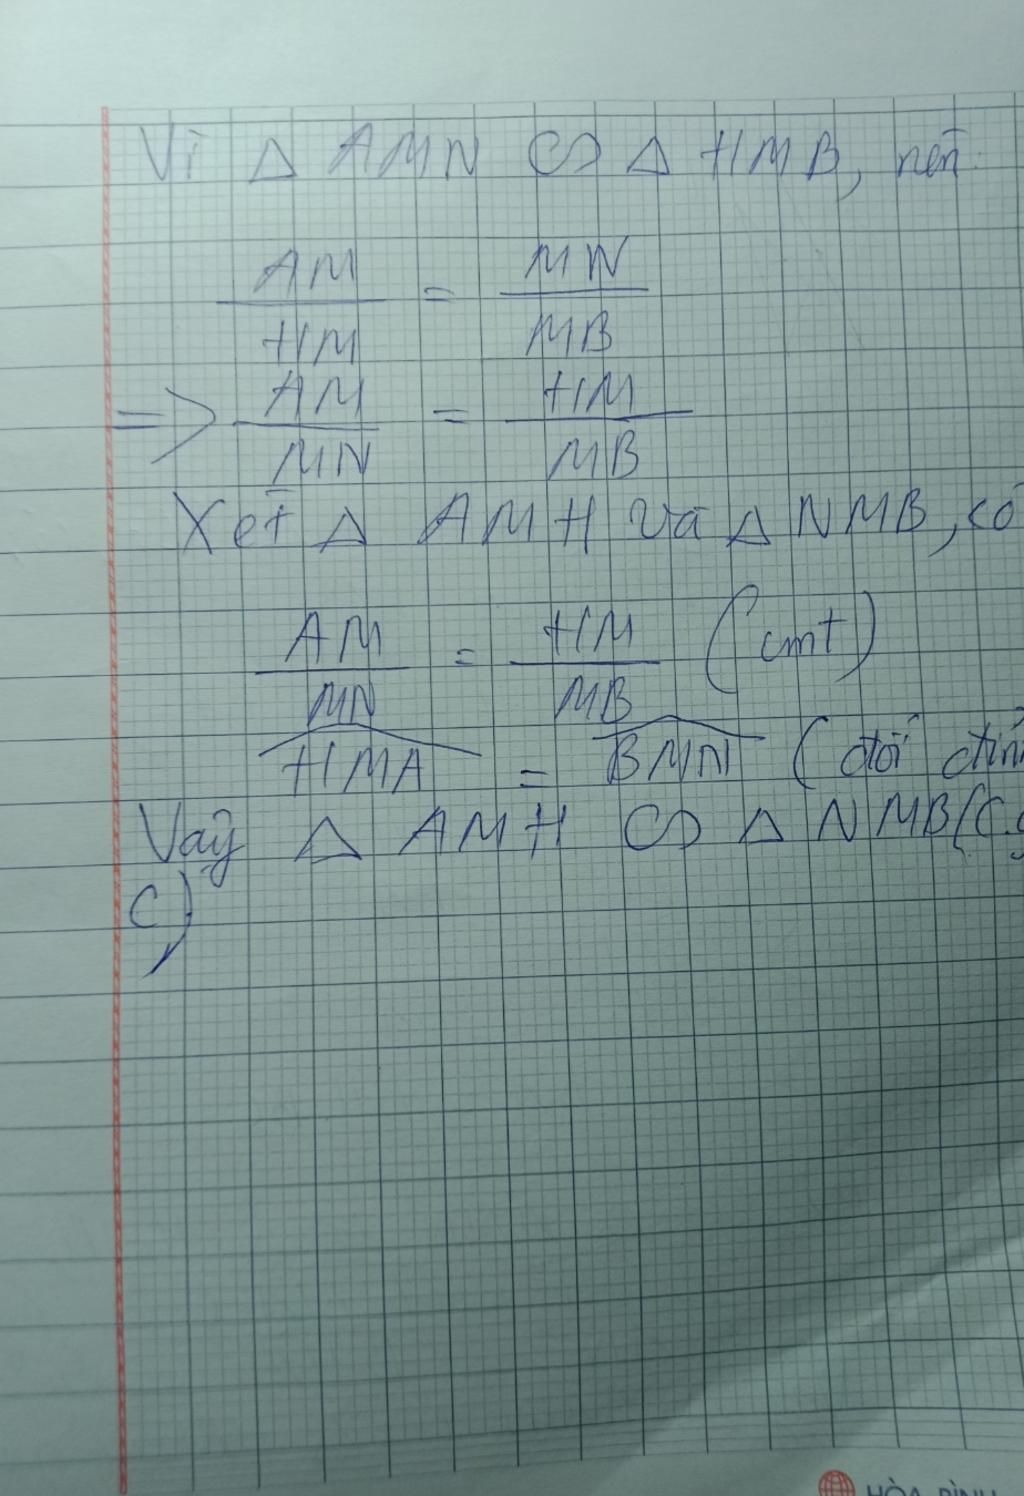 Vì Δ AMN ∽ Δ HMB, nên:
AM/HM = MN/MB
=> AM/MN = HM/MB
Xét Δ AMH và Δ NMB, có
AM/MN = HM/MB (cmt)
\widehat{HMA} = \widehat{BMN} (đối đỉnh
Vậy Δ AMH ∽ Δ NMB (c.g
c)
HÒA BÌNH